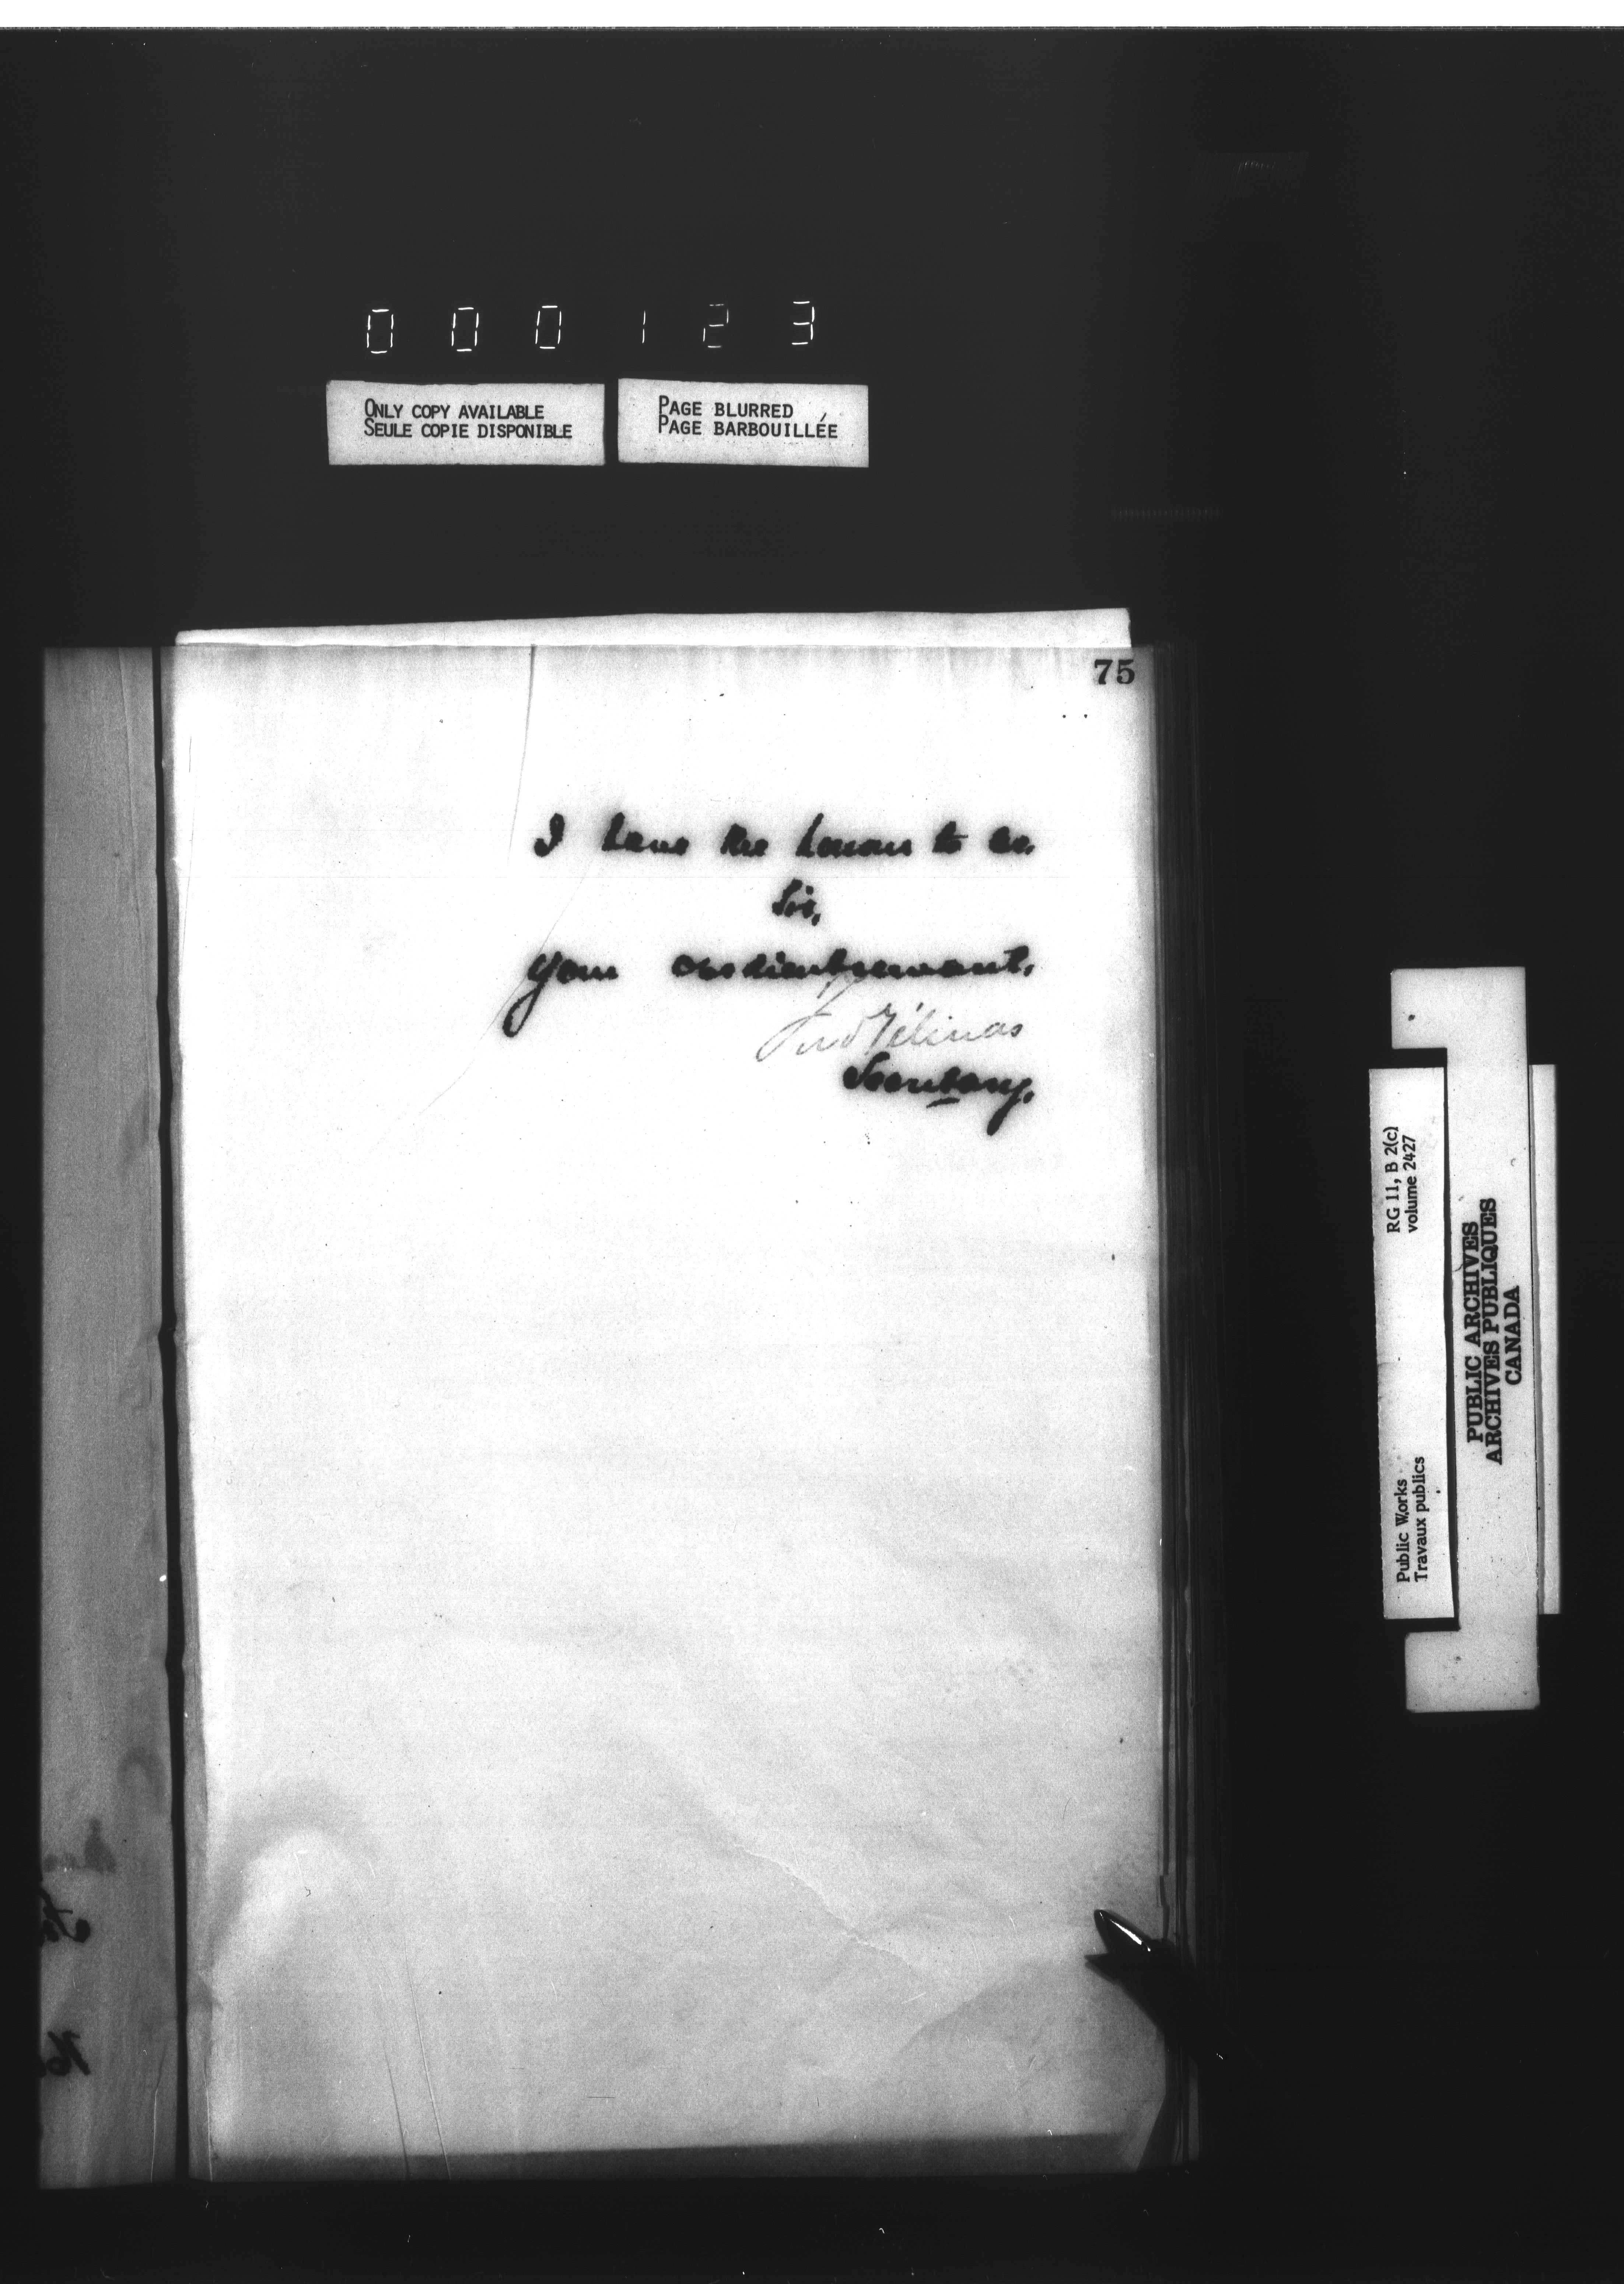 000123
ONLY COPY AVAILABLE
SEULE COPIE DISPONIBLE
PAGE BLURRED
PAGE BARBOUILLÉE
75
I have the honour to be.
Sir,
Your obedient servant.
Fred Gélinas
Secretary.
RG 11, B 2(c)
volume 2427
Public Works
Travaux publics
PUBLIC ARCHIVES
ARCHIVES PUBLIQUES
CANADA